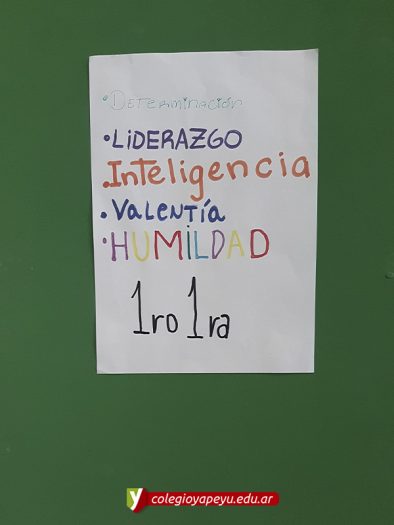 • Determinación
• LiDERAZGO
• Inteligencia
• VaLENTía
• HUMiLDAD
1ro 1ra
y colegioyapeyu.edu.ar